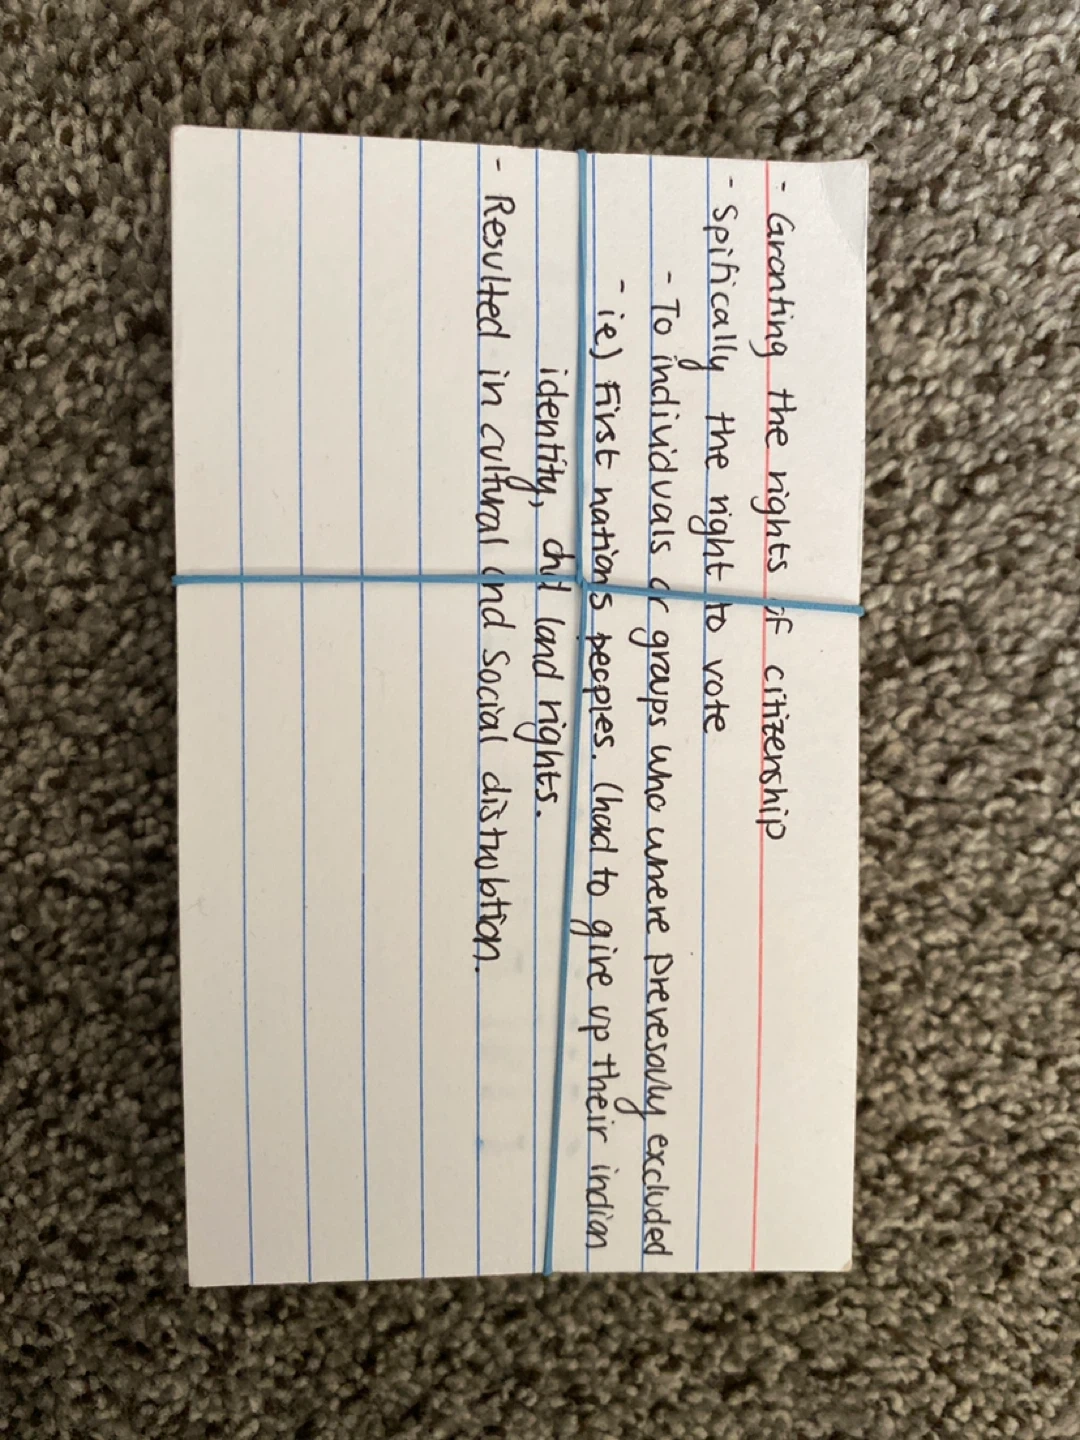 - Granting the rights of citizenship
- Spifically the right to vote
- To individuals or groups who where prevesouly excluded
- ie) First nations peoples. (had to give up their indian
identity, land rights.
- Resulted in cultural and social distrubtion.